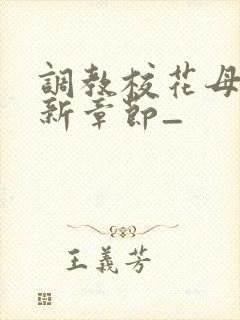 調教校花母
新章節_
王義芳